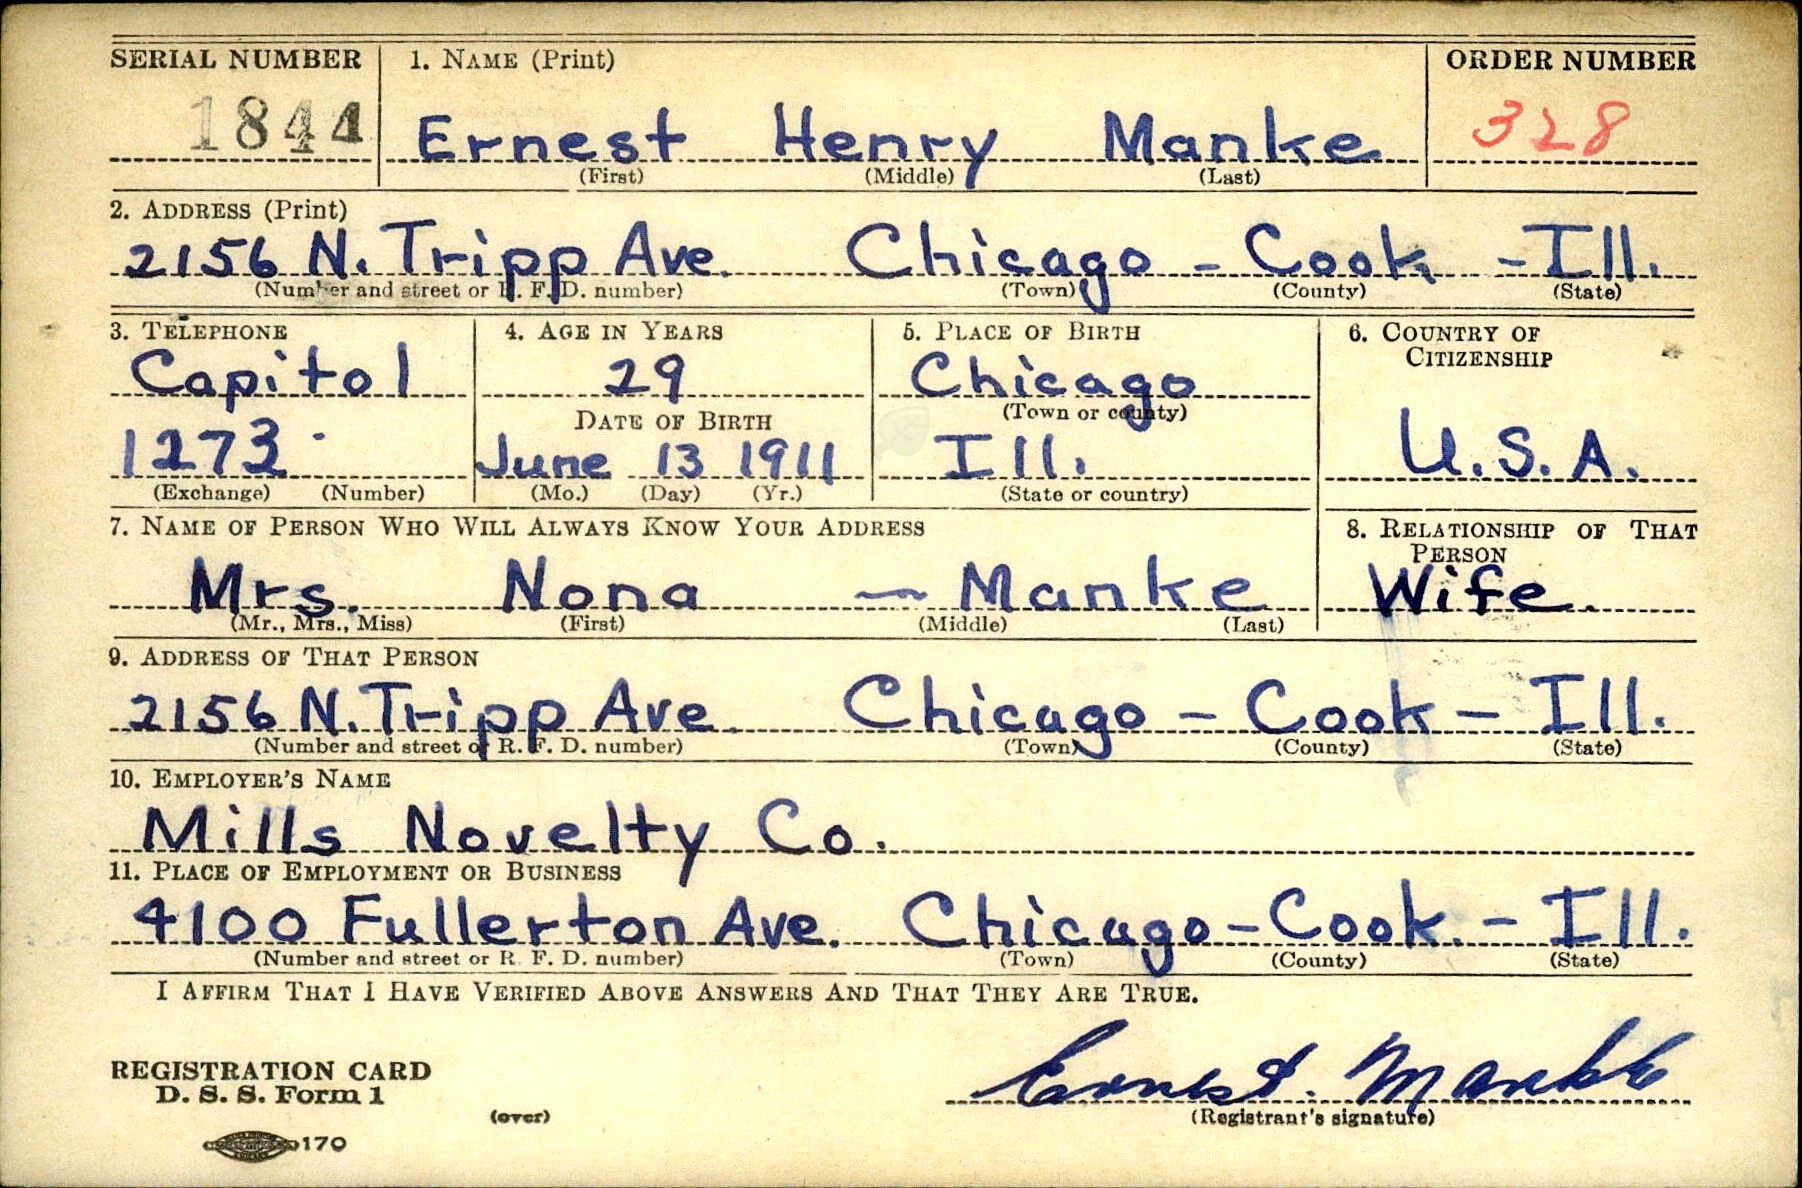 SERIAL NUMBER 1. NAME (Print) ORDER NUMBER
1844 Ernest Henry Manke 328
(First) (Middle) (Last)
2. ADDRESS (Print)
2156 N. Tripp Ave. Chicago - Cook - Ill.
(Number and street or R. F. D. number) (Town) (County) (State)
3. TELEPHONE 4. AGE IN YEARS 5. PLACE OF BIRTH 6. COUNTRY OF
CITIZENSHIP
Capitol 29 Chicago
DATE OF BIRTH (Town or county)
1273 June 13 1911 Ill. U.S.A.
(Exchange) (Number) (Mo.) (Day) (Yr.) (State or country)
7. NAME OF PERSON WHO WILL ALWAYS KNOW YOUR ADDRESS 8. RELATIONSHIP OF THAT
PERSON
Mrs. Nona — Manke Wife.
(Mr., Mrs., Miss) (First) (Middle) (Last)
9. ADDRESS OF THAT PERSON
2156 N. Tripp Ave. Chicago - Cook - Ill.
(Number and street or R. F. D. number) (Town) (County) (State)
10. EMPLOYER'S NAME
Mills Novelty Co.
11. PLACE OF EMPLOYMENT OR BUSINESS
4100 Fullerton Ave. Chicago - Cook. - Ill.
(Number and street or R. F. D. number) (Town) (County) (State)
I AFFIRM THAT I HAVE VERIFIED ABOVE ANSWERS AND THAT THEY ARE TRUE.
REGISTRATION CARD
D. S. S. Form 1
Ernest. Manke
(over) (Registrant's signature)
170